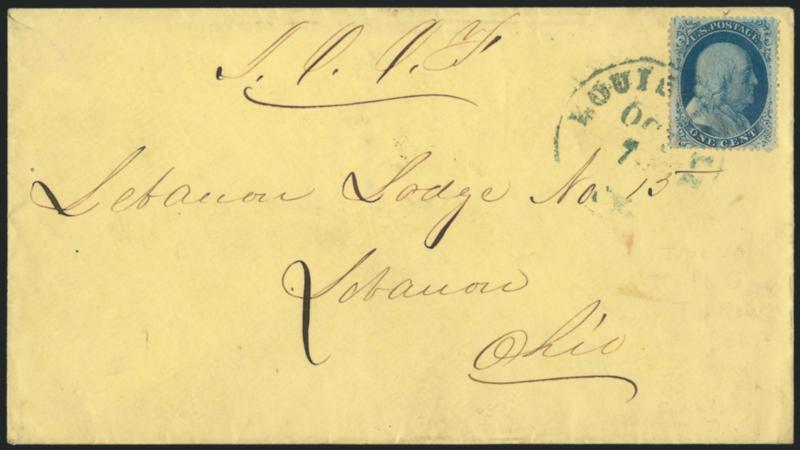 I. O. O. F
U.S. POSTAGE
ONE CENT
LOUIS
OC
7
Lebanon Lodge No 15
Lebanon
Ohio